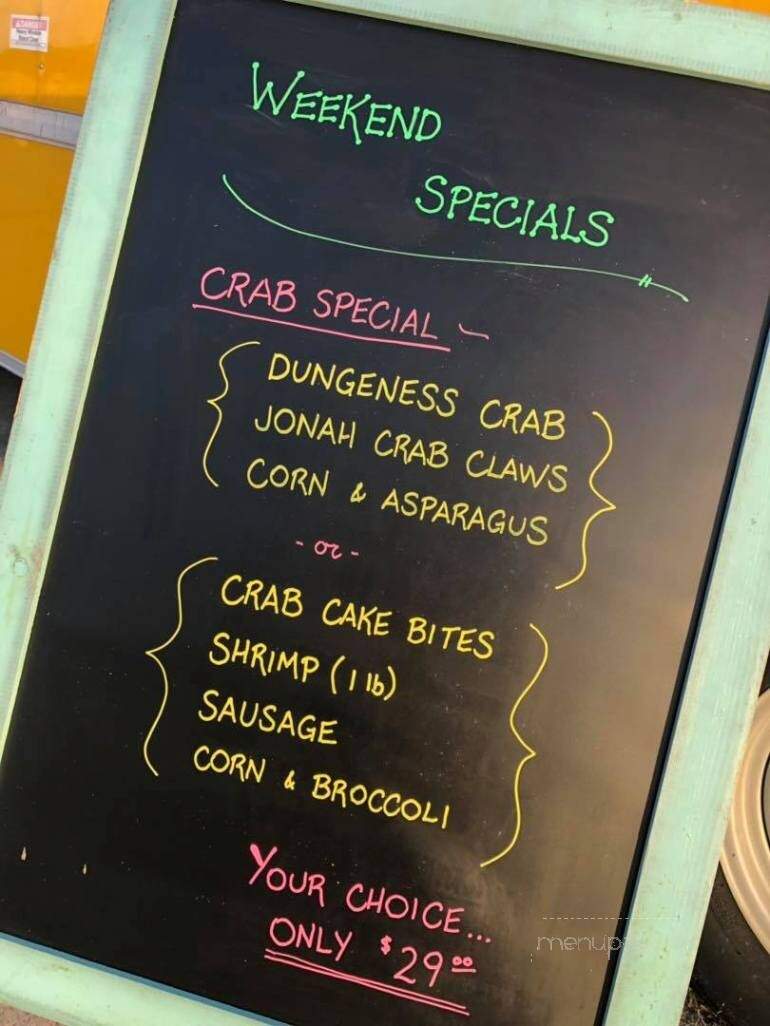 WEEKEND
SPECIALS
CRAB SPECIAL -
DUNGENESS CRAB
JONAH CRAB CLAWS
CORN & ASPARAGUS
- or -
CRAB CAKE BITES
SHRIMP (1 lb)
SAUSAGE
CORN & BROCCOLI
YOUR CHOICE...
ONLY $29.00